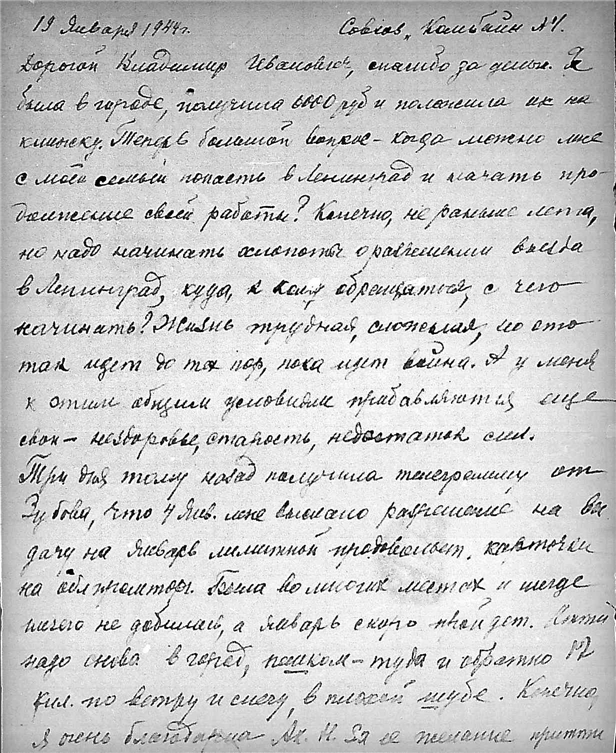 19 Января 1944г. Совхоз "Комбайн №1.
Дорогой Владимир Иванович, спасибо за деньги. Я
была в городе, получила 6000 руб и положила их на
книжку. Теперь большой вопрос – когда можно мне
с моей семьей попасть в Ленинград и начать про-
должение своей работы? Конечно, не раньше лета,
но надо начинать хлопоты о разрешении въезда
в Ленинград, куда, к кому обращаться, с чего
начинать? Жизнь трудная, сложная, но это
так идет до тех пор, пока идет война. А у меня
к этим общим условиям прибавляются еще
свои – нездоровье, старость, недостаток сил.
Три дня тому назад получила телеграмму от
Зубова, что 4 Янв. мне выслано разрешение на вы
дачу на Январь лимитной продовольст. карточки
на облпромторг. Была во многих местах и нигде
ничего не добилась, а январь скоро пройдет. Идти
надо снова в город, пешком – туда и обратно 17
кил. по ветру и снегу, в плохой шубе. Конечно
я очень благодарна Ак. Н. за ее желание притти